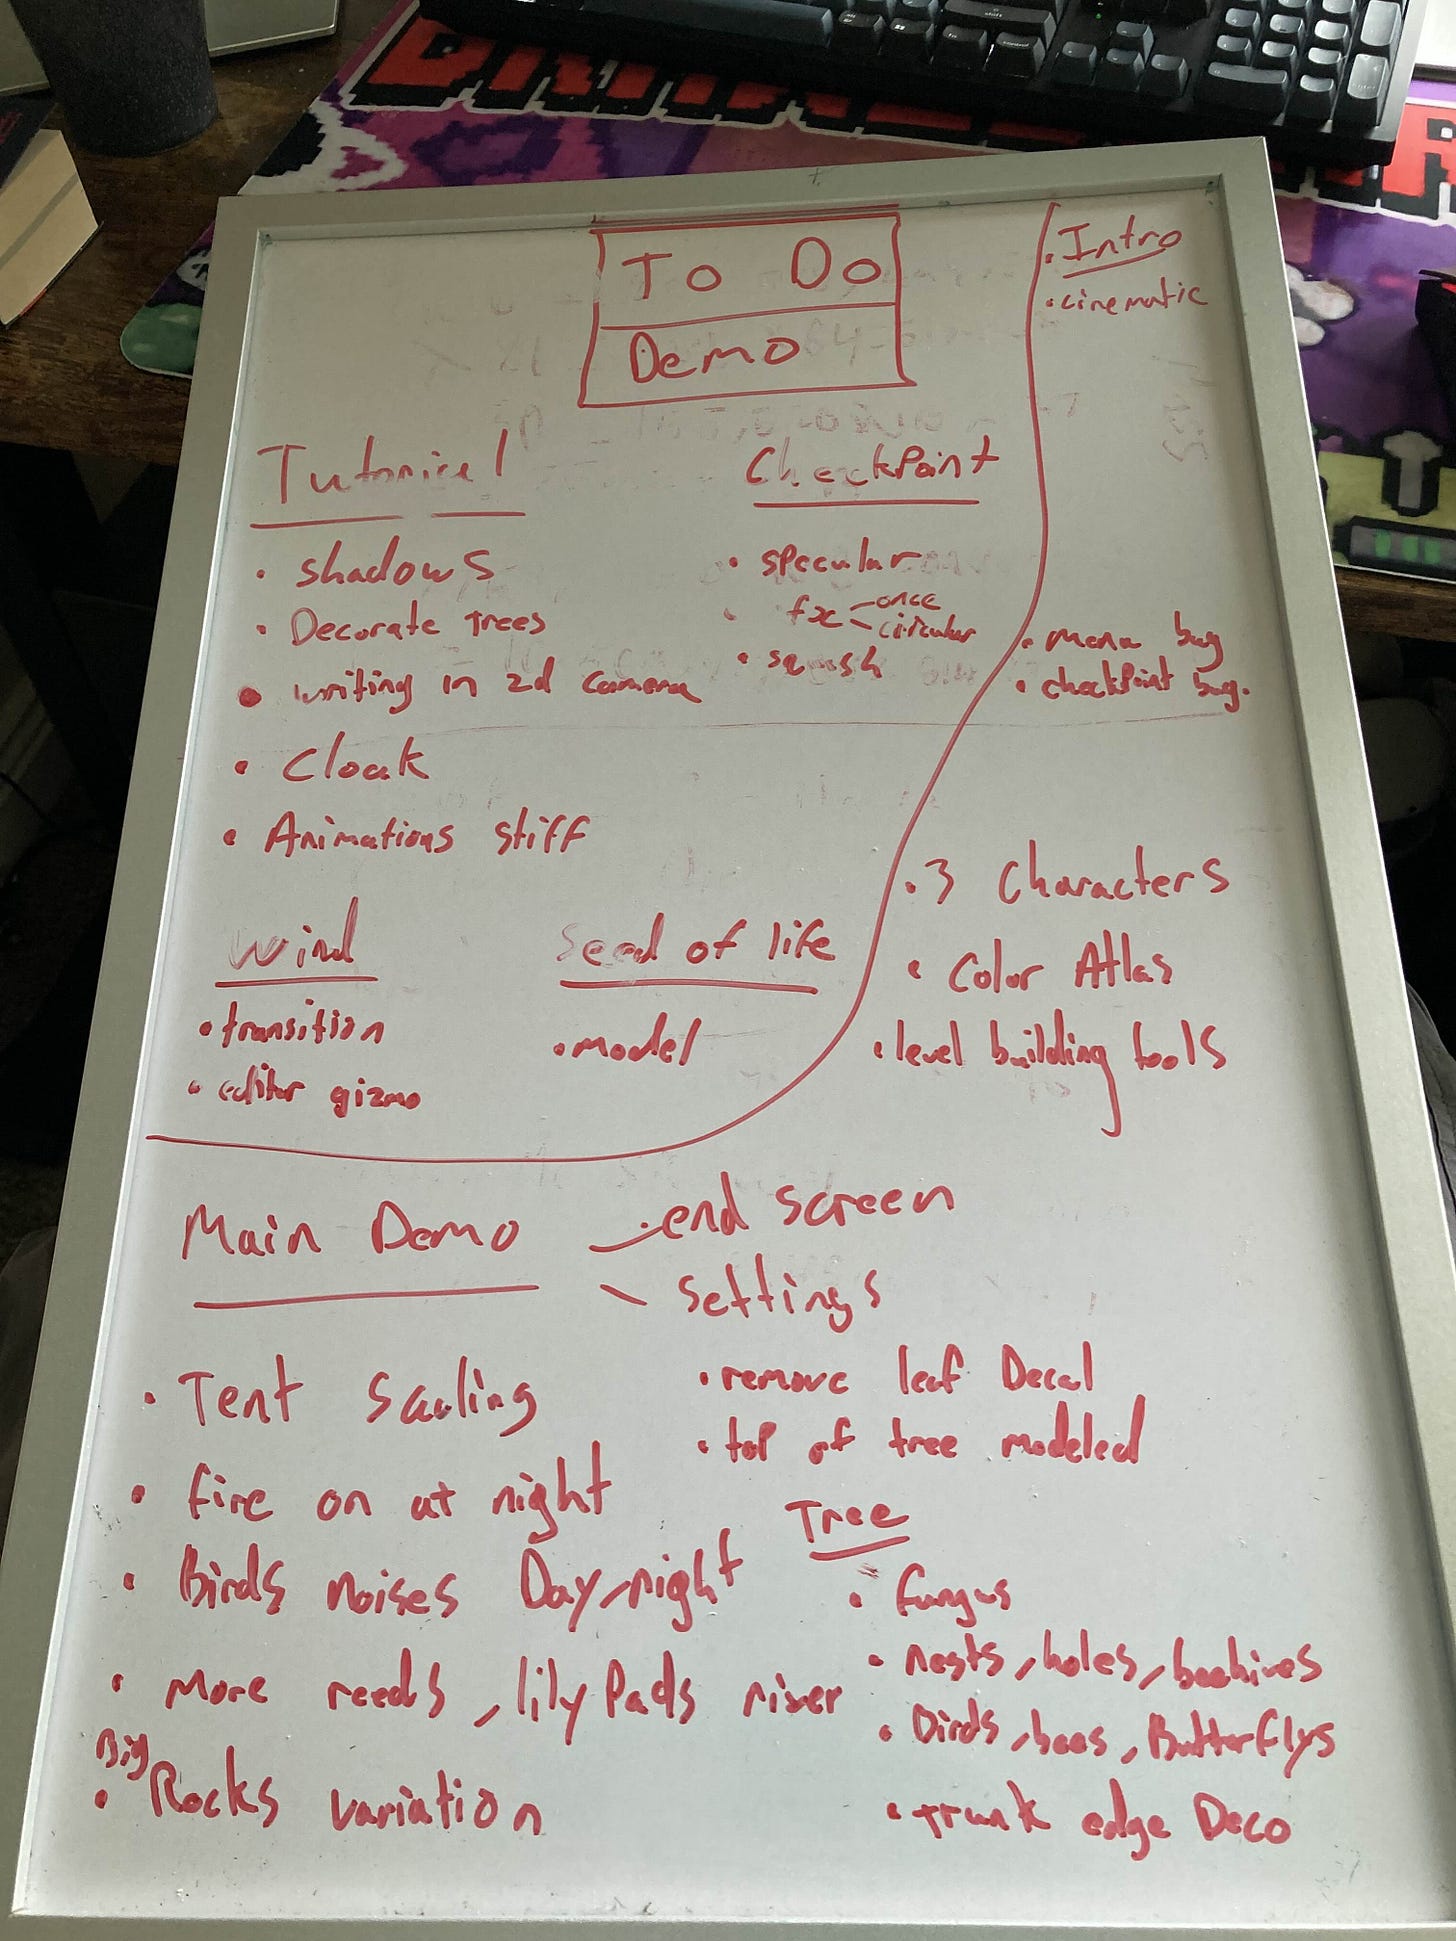 To Do
Demo
Tutorial
• shadows
• Decorate Trees
• writing in 2d camera
• Cloak
• Animations stiff
CheckPoint
• specular
• fx - once
- circular
• squish
• Intro
• cinematic
• menu bug
• checkPoint bug.
Wind
• transition
• editor gizmo
Seed of life
• model
• 3 Characters
• Color Atlas
• level building tools
Main Demo
- end screen
- settings
• Tent Scaling
• fire on at night
• Birds noises Day, night
• More reeds, lily Pads river
Big
• Rocks variation
• remove leaf Decal
• top of tree modeled
Tree
• fungus
• nests, holes, beehives
• Birds, bees, Butterflys
• trunk edge Deco